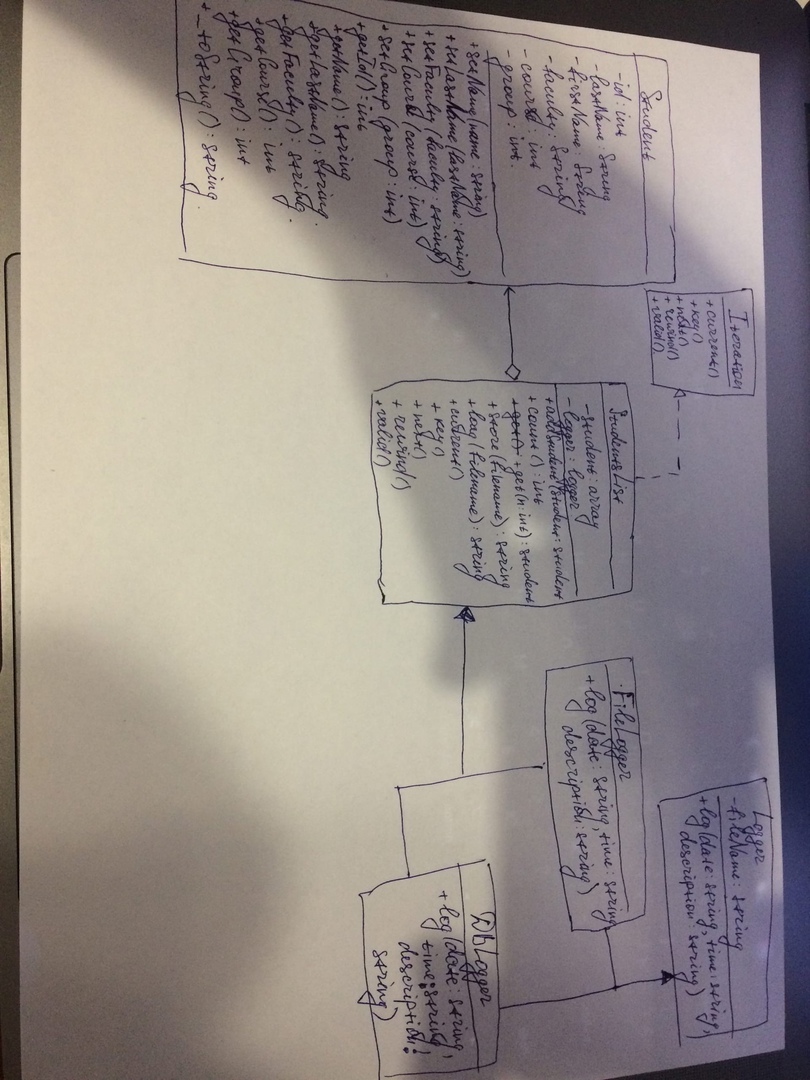 Student
-id: int
-lastName: String
-firstName: String
-faculty: String
-course: int
-group: int.
+setName(name: string)
+setLastName(lastName: string)
+setFaculty(faculty: string)
+setCourse(course: int)
+setGroup(group: int)
+getId(): int
+getName(): string
+getLastName(): string.
+getFaculty(): string.
+getCourse(): int
+getGroup(): int
+_toString(): string.
Iteration
+current()
+key()
+next()
+rewind()
+valid()
StudentsList
-student: array
-logger: logger
+addStudent(student: student
+count(): int
+get() +get(n: int): student
+store(filename): string
+load(filename): string
+current()
+key()
+next()
+rewind()
+valid()
FileLogger
+log(date: string, time: string
description: string)
Logger
-fileName: string
+log(date: string, time: string,
description: string)
DbLogger
+log(date: string,
time: string
description:
string)